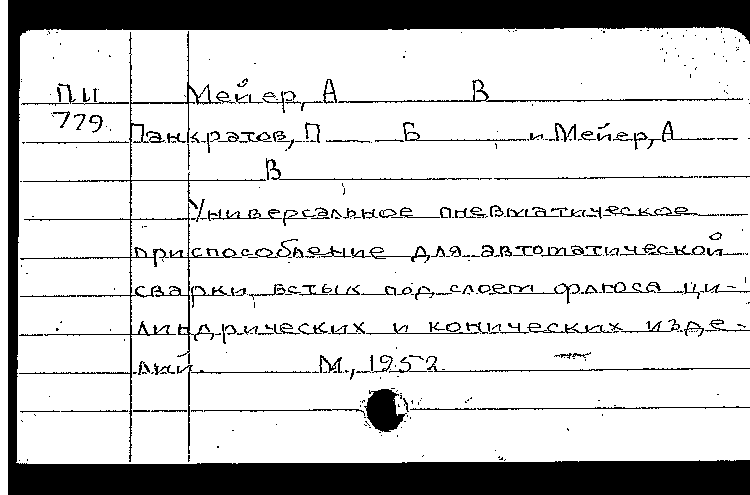 ПИ Мейер, А В
779 Панкратов, П Б и Мейер, А
В
Универсальное пневматическое
приспособление для автоматической
сварки встык под слоем флюса ци-
линдрических и конических изде-
лий. М., 1952